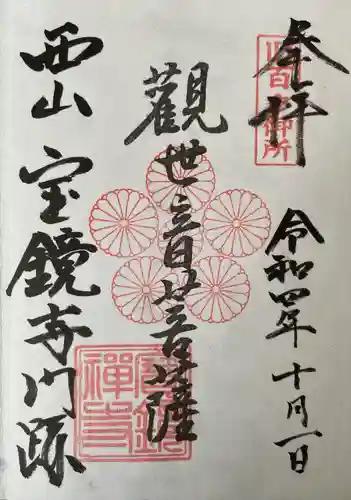 奉拝
百々御所
令和四年十月一日
觀世音菩薩
西山宝鏡寺門跡
寶鏡禅寺